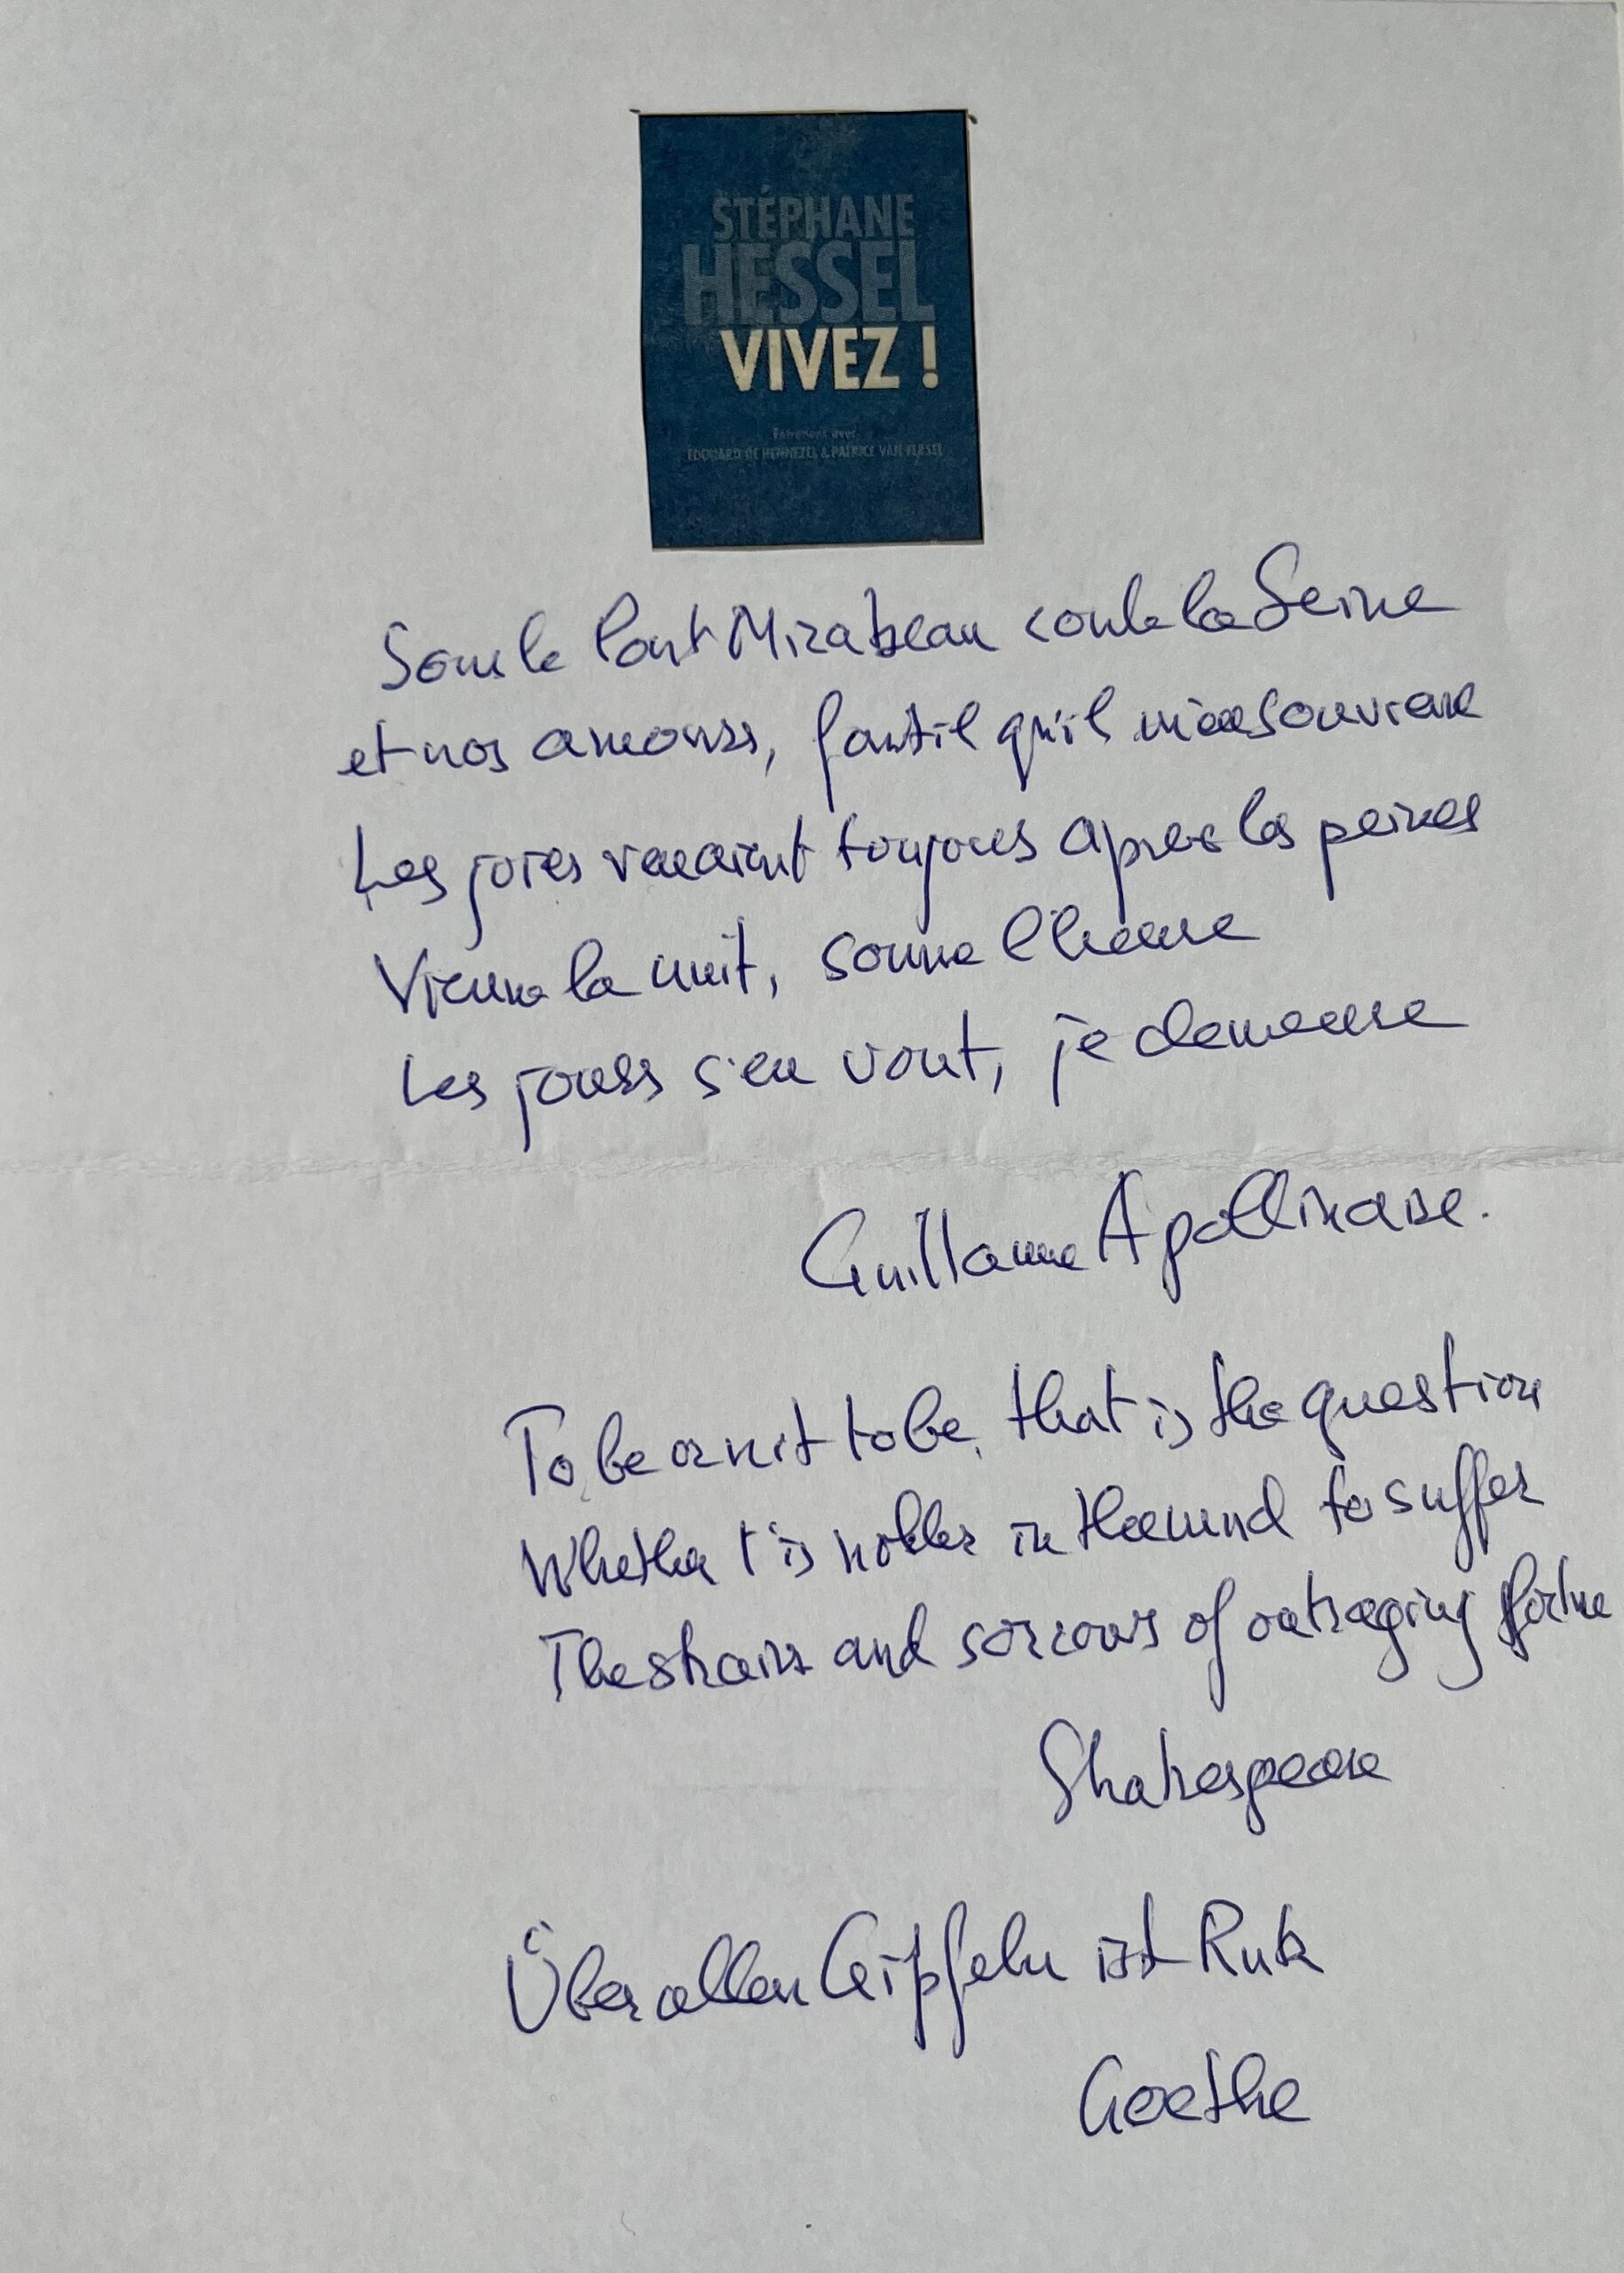 STÉPHANE
HESSEL
VIVEZ !
Entretiens avec
EDOUARD DE HENNEZEL & PATRICE VAN EERSEL
Sous le Pont Mirabeau coule la Seine
et nos amours, faut il qu'il m'en souvienne
Les joies venaient toujours apres les peines
Vienne la nuit, sonne l'heure
Les jours s'en vont, je demeure
Guillaume Apollinaire.
To be or not to be, that is the question
Whether t'is nobler in the mind to suffer
The strains and sorrows of outraging fortune
Shakespeare
Über allen Gipfeln ist Ruh
Goethe